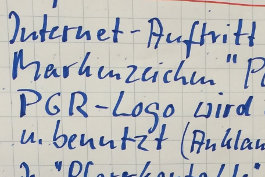 Internet-Auftritt
Markenzeichen "P
PGR-Logo wird
u. benutzt (Anklan